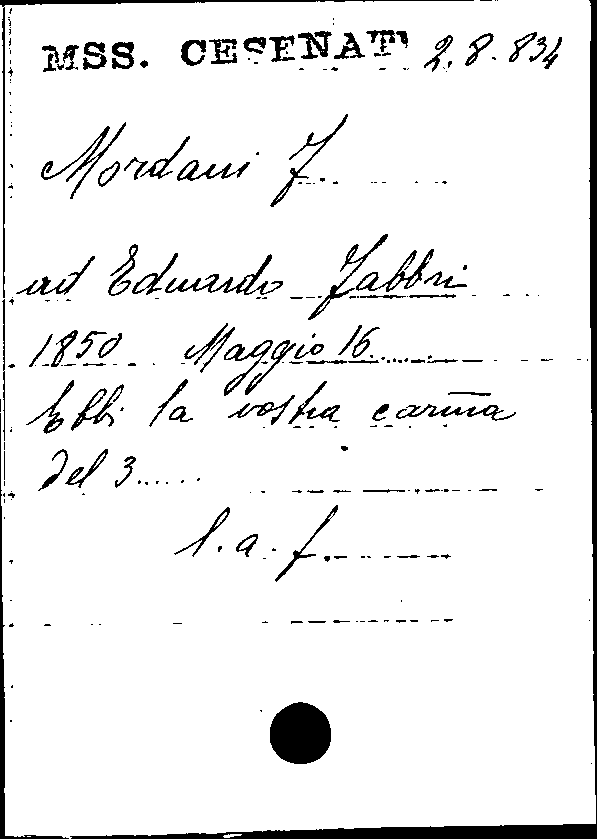 MSS. CESENATI 2.8.834
Mordani F.
ad Eduardo Fabbri
1850 Maggio 16......
Ebbi la vostra cariña
del 3......
l. a. f.